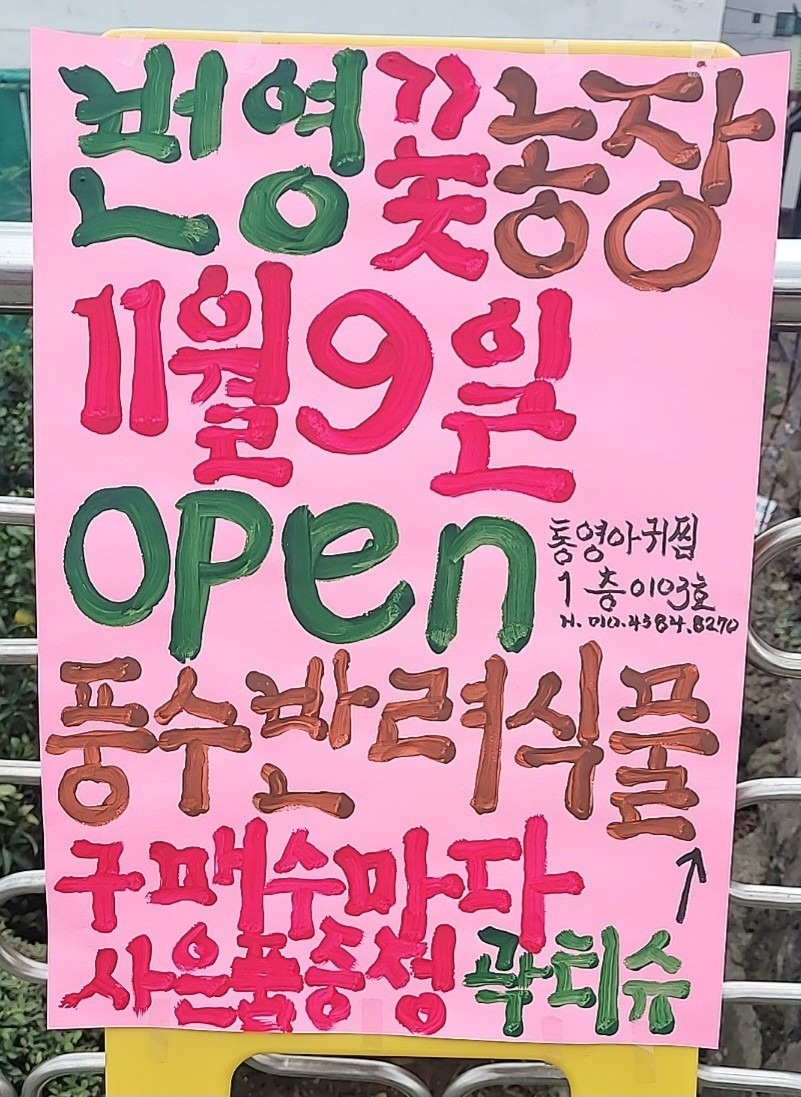 번영꽃농장
11월9일
open
통영아귀찜
1층 0103호
H. 010.4584.8270
풍수반려식물
구매수마다
사은품증정 곽티슈